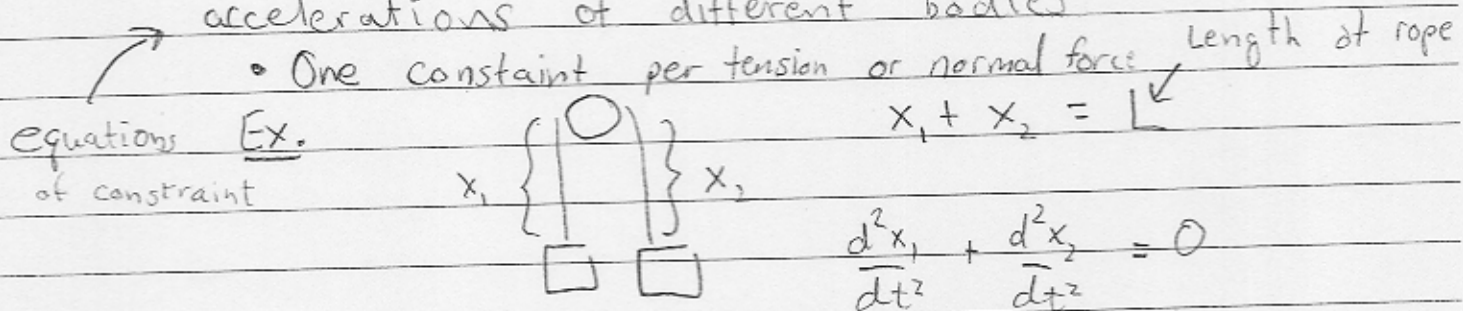 accelerations of different bodies
• One constaint per tension or normal force
Length of rope
x₁ + x₂ = L
equations Ex.
of constraint
x₁ x₂
d²x₁/dt² + d²x₂/dt² = 0